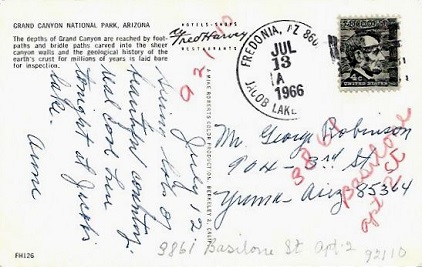 GRAND CANYON NATIONAL PARK, ARIZONA
The depths of Grand Canyon are reached by foot-
paths and bridle paths carved into the sheer
canyon walls and the geological history of the
earth's crust for millions of years is laid bare
for inspection.
HOTELS · SHOPS
Fred Harvey
RESTAURANTS
FREDONIA, AZ 860
JUL
13
A
1966
JACOB LAKE
4c
UNITED STATES
July 12
Seeing lots of
beautiful country.
Real cool here
tonight at Jacob's
Lake.
Anne
MIKE ROBERTS COLOR PRODUCTION, BERKELEY 2, CALIF.
Mr. George Robinson
904 - 3rd St.
Yuma - Ariz 85364
92110
3868
Basilone
apt 2 St
FH126
3861 Basilone St Apt. 2
92110